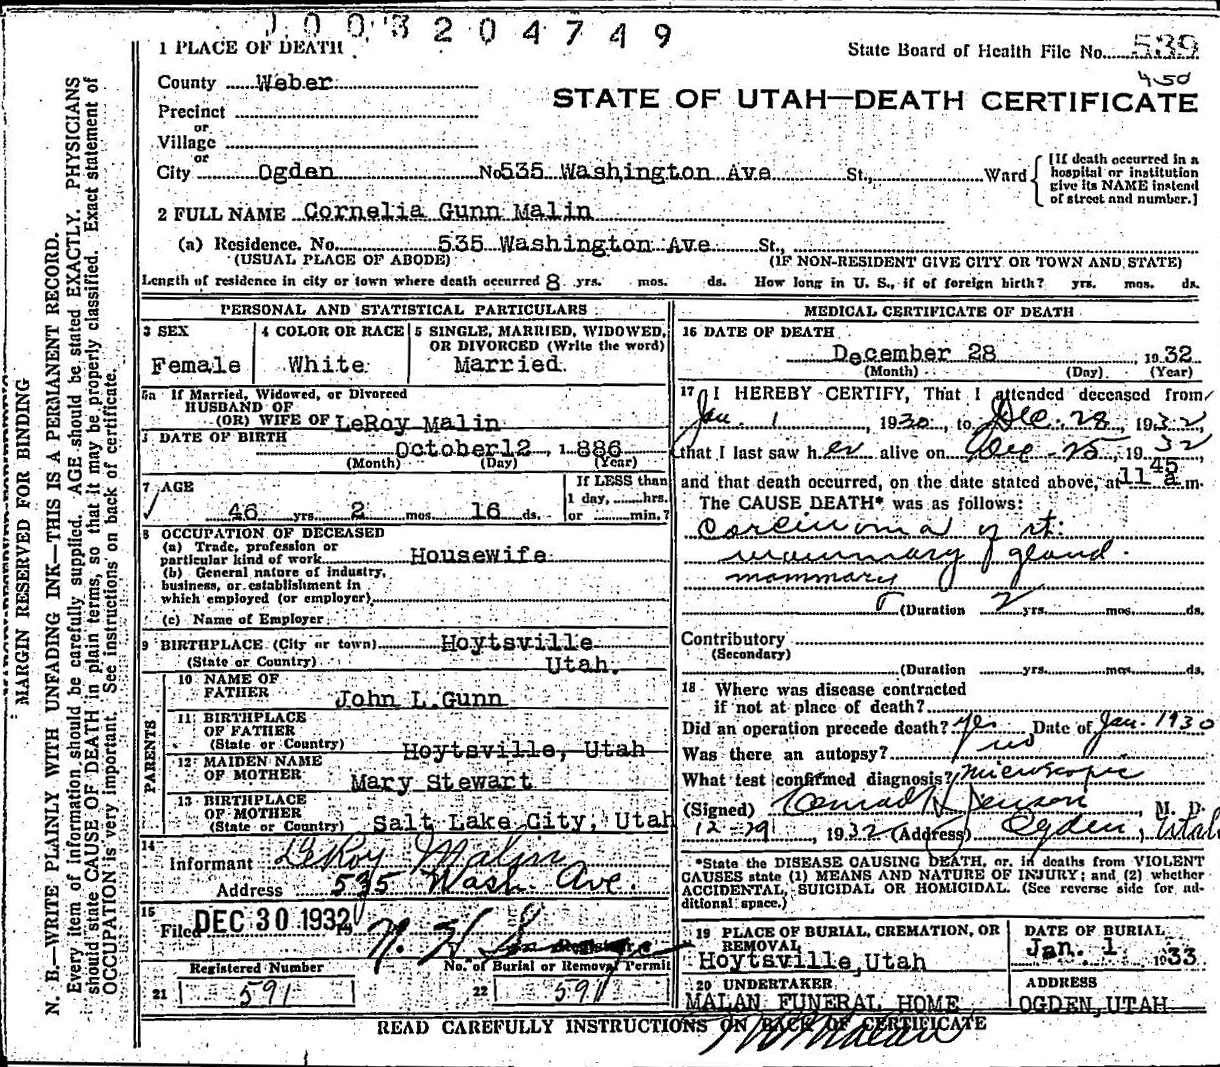 0003204749
State Board of Health File No. 539
450
STATE OF UTAH—DEATH CERTIFICATE
1 PLACE OF DEATH
County Weber
Precinct
or
Village
or
City Ogden No 535 Washington Ave St., Ward [If death occurred in a hospital or institution give its NAME instead of street and number.]
2 FULL NAME Cornelia Gunn Malin
(a) Residence. No. 535 Washington Ave St.,
(USUAL PLACE OF ABODE) (IF NON-RESIDENT GIVE CITY OR TOWN AND STATE)
Length of residence in city or town where death occurred 8 yrs. mos. ds. How long in U. S., if of foreign birth? yrs. mos. ds.
PERSONAL AND STATISTICAL PARTICULARS
3 SEX
Female
4 COLOR OR RACE
White
5 SINGLE, MARRIED, WIDOWED,
OR DIVORCED (Write the word)
Married
5a If Married, Widowed, or Divorced
HUSBAND OF
(OR) WIFE OF LeRoy Malin
DATE OF BIRTH
October 12, 1886
(Month) (Day) (Year)
7 AGE
46 yrs. 2 mos. 16 ds.
If LESS than
1 day, hrs.
or min.?
8 OCCUPATION OF DECEASED
(a) Trade, profession or
particular kind of work Housewife
(b) General nature of industry,
business, or establishment in
which employed (or employer)
(c) Name of Employer
9 BIRTHPLACE (City or town) Hoytsville
(State or Country) Utah.
PARENTS
10 NAME OF
FATHER John L. Gunn
11 BIRTHPLACE
OF FATHER
(State or Country) Hoytsville, Utah
12 MAIDEN NAME
OF MOTHER Mary Stewart
13 BIRTHPLACE
OF MOTHER
(State or Country) Salt Lake City, Utah
14
Informant LeRoy Malin
Address 535 Wash. Ave.
15
Filed DEC 30 1932
Registered Number
21 591
No. of Burial or Removal Permit
22 591
MEDICAL CERTIFICATE OF DEATH
16 DATE OF DEATH
December 28, 1932
(Month) (Day) (Year)
17 I HEREBY CERTIFY, That I attended deceased from
Jan. 1, 1930, to Dec. 28, 1932,
that I last saw her alive on Dec - 25, 1932
and that death occurred, on the date stated above, at 11 45 a m.
The CAUSE DEATH* was as follows:
Carcinoma of rt.
mammary gland.
mammary
(Duration 2 yrs. mos. ds.
Contributory
(Secondary)
(Duration yrs. mos. ds.
18 Where was disease contracted
if not at place of death?
Did an operation precede death? Yes Date of Jan. 1930
Was there an autopsy? no
What test confirmed diagnosis? Microscopic
(Signed) Conrad H Jenson, M. D.
12-29, 1932 (Address) Ogden, Utah
*State the DISEASE CAUSING DEATH, or, in deaths from VIOLENT
CAUSES state (1) MEANS AND NATURE OF INJURY; and (2) whether
ACCIDENTAL, SUICIDAL OR HOMICIDAL. (See reverse side for ad-
ditional space.)
19 PLACE OF BURIAL, CREMATION, OR
REMOVAL
Hoytsville, Utah
DATE OF BURIAL
Jan. 1 1933
20 UNDERTAKER
MALAN FUNERAL HOME
ADDRESS
OGDEN, UTAH
READ CAREFULLY INSTRUCTIONS ON BACK OF CERTIFICATE
MARGIN RESERVED FOR BINDING
N. B.—WRITE PLAINLY WITH UNFADING INK—THIS IS A PERMANENT RECORD.
Every item of information should be carefully supplied. AGE should be stated EXACTLY. PHYSICIANS
should state CAUSE OF DEATH in plain terms, so that it may be properly classified. Exact statement of
OCCUPATION is very important. See instructions on back of certificate.